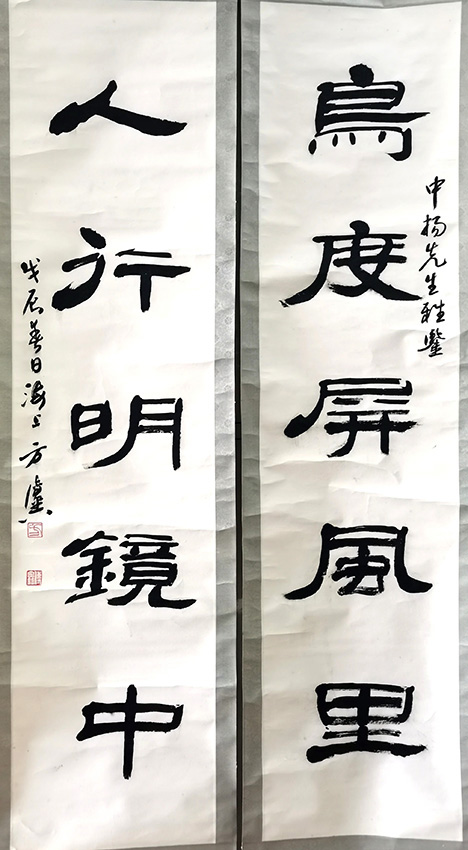 中揚先生雅鑒
鳥度屏風里
人行明鏡中
戊辰春日海上方